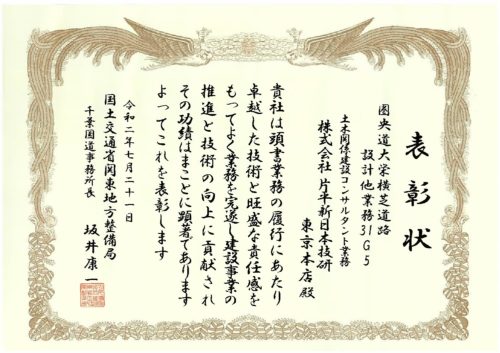 表彰状
圏央道大栄横芝道路
設計他業務31G5
土木関係建設コンサルタント業務
株式会社 片平新日本技研
東京本店 殿
貴社は頭書業務の履行にあたり
卓越した技術と旺盛な責任感を
もってよく業務を完遂し建設事業の
推進と技術の向上に貢献され
その功績はまことに顕著であります
よってこれを表彰します
令和二年七月二十一日
国土交通省関東地方整備局
千葉国道事務所長 坂井康一